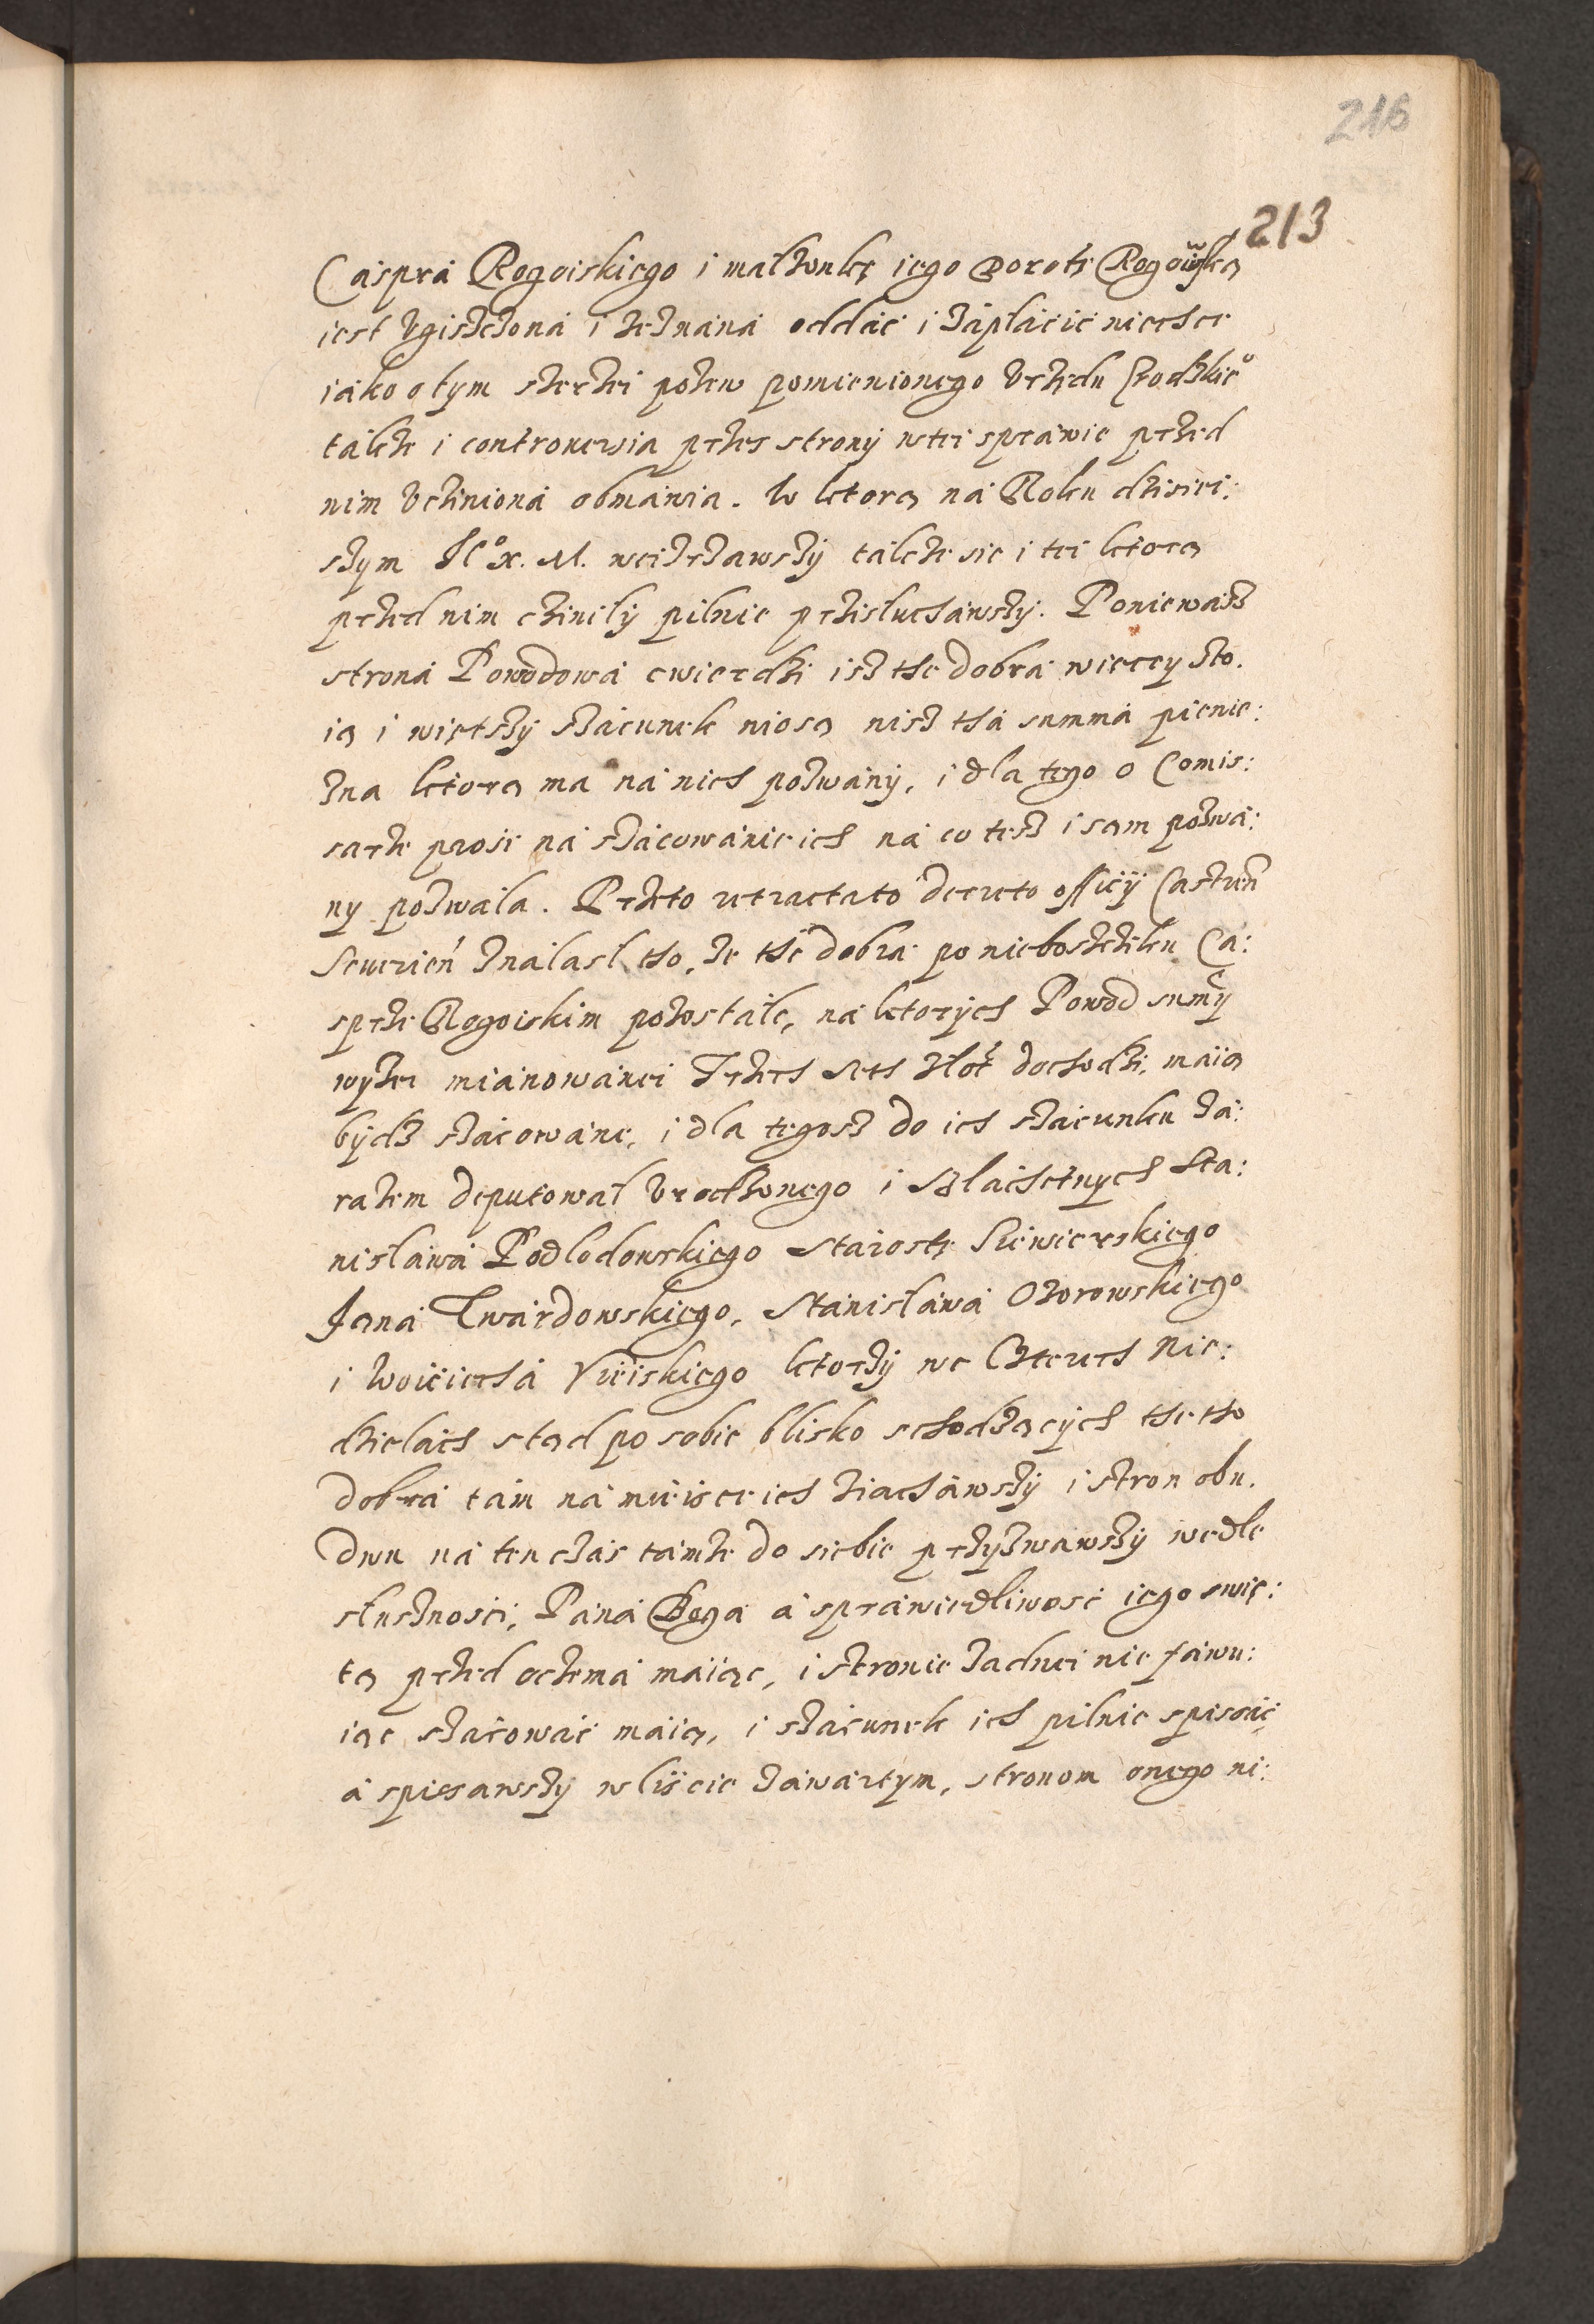 216
213
Caspra Rogoiskiego i malżonkę iego Dorotę Rogowską
iest Vgiszczoná i zeznaná oddać i zápłáćić niechce
iako o tym szerzei pozew pomienionego Vrzędu Grodzkie°
tákże i controwersia przez strony wtei spráwie przed
nim Vczynioná obmawia. W ktorą ná Roku dzisiei:
szym J° X. M. weizrzawszy tákże się i tei ktorą
przed nim czinily pilnie przisluchawszy. Poniewasz
stroná Powodowá twierdzi isz the dobrá więcey sto.
ią i więtszy szácunek niosą nisz thá summá pienię:
zna ktorą ma ná nich pozwány, i dla tego o Comis:
sarze prosi ná szácowánie ich ná co tesz i sam pozwá:
ny pozwala. Przeto retractato decreto officij Castren̄
Severien̄ ználasl tho, że thé dobrá po nieboszcziku Ca:
sprze Rogoiskim pozostále, ná ktorych Powod sum̄y
wyżei miánowánei Trzech Set Złot dochodzi, máią
bydz szácowáne, i dla tegosz do ich szácunku zá:
razem deputowal Vrodzonego i Szláchetnych Sta:
nisláwá Podlodowskiego Stárostę Siewierskiego
Janá Twárdowskiego, Stánisláwá Ozorowskiego
i Woićiechá Vieiskiego ktorzy we Czterech Nie:
dzielách stąd po sobie blisko schodzących the tho
dobrá tám ná mieisce ich ziachawszy i stron obu.
dwu ná ten czás tamże do siebie przyzwawszy wedle
sluszności, Páná Bogá á spráwiedliwość iego swię:
tą przed oczemá máiąc, i stronie żadnei nie fáwu:
iąc szácować máią, i szácunek ich pilnie spisáć
á spisawszy w lisćie záwártym, stronom onego ni: